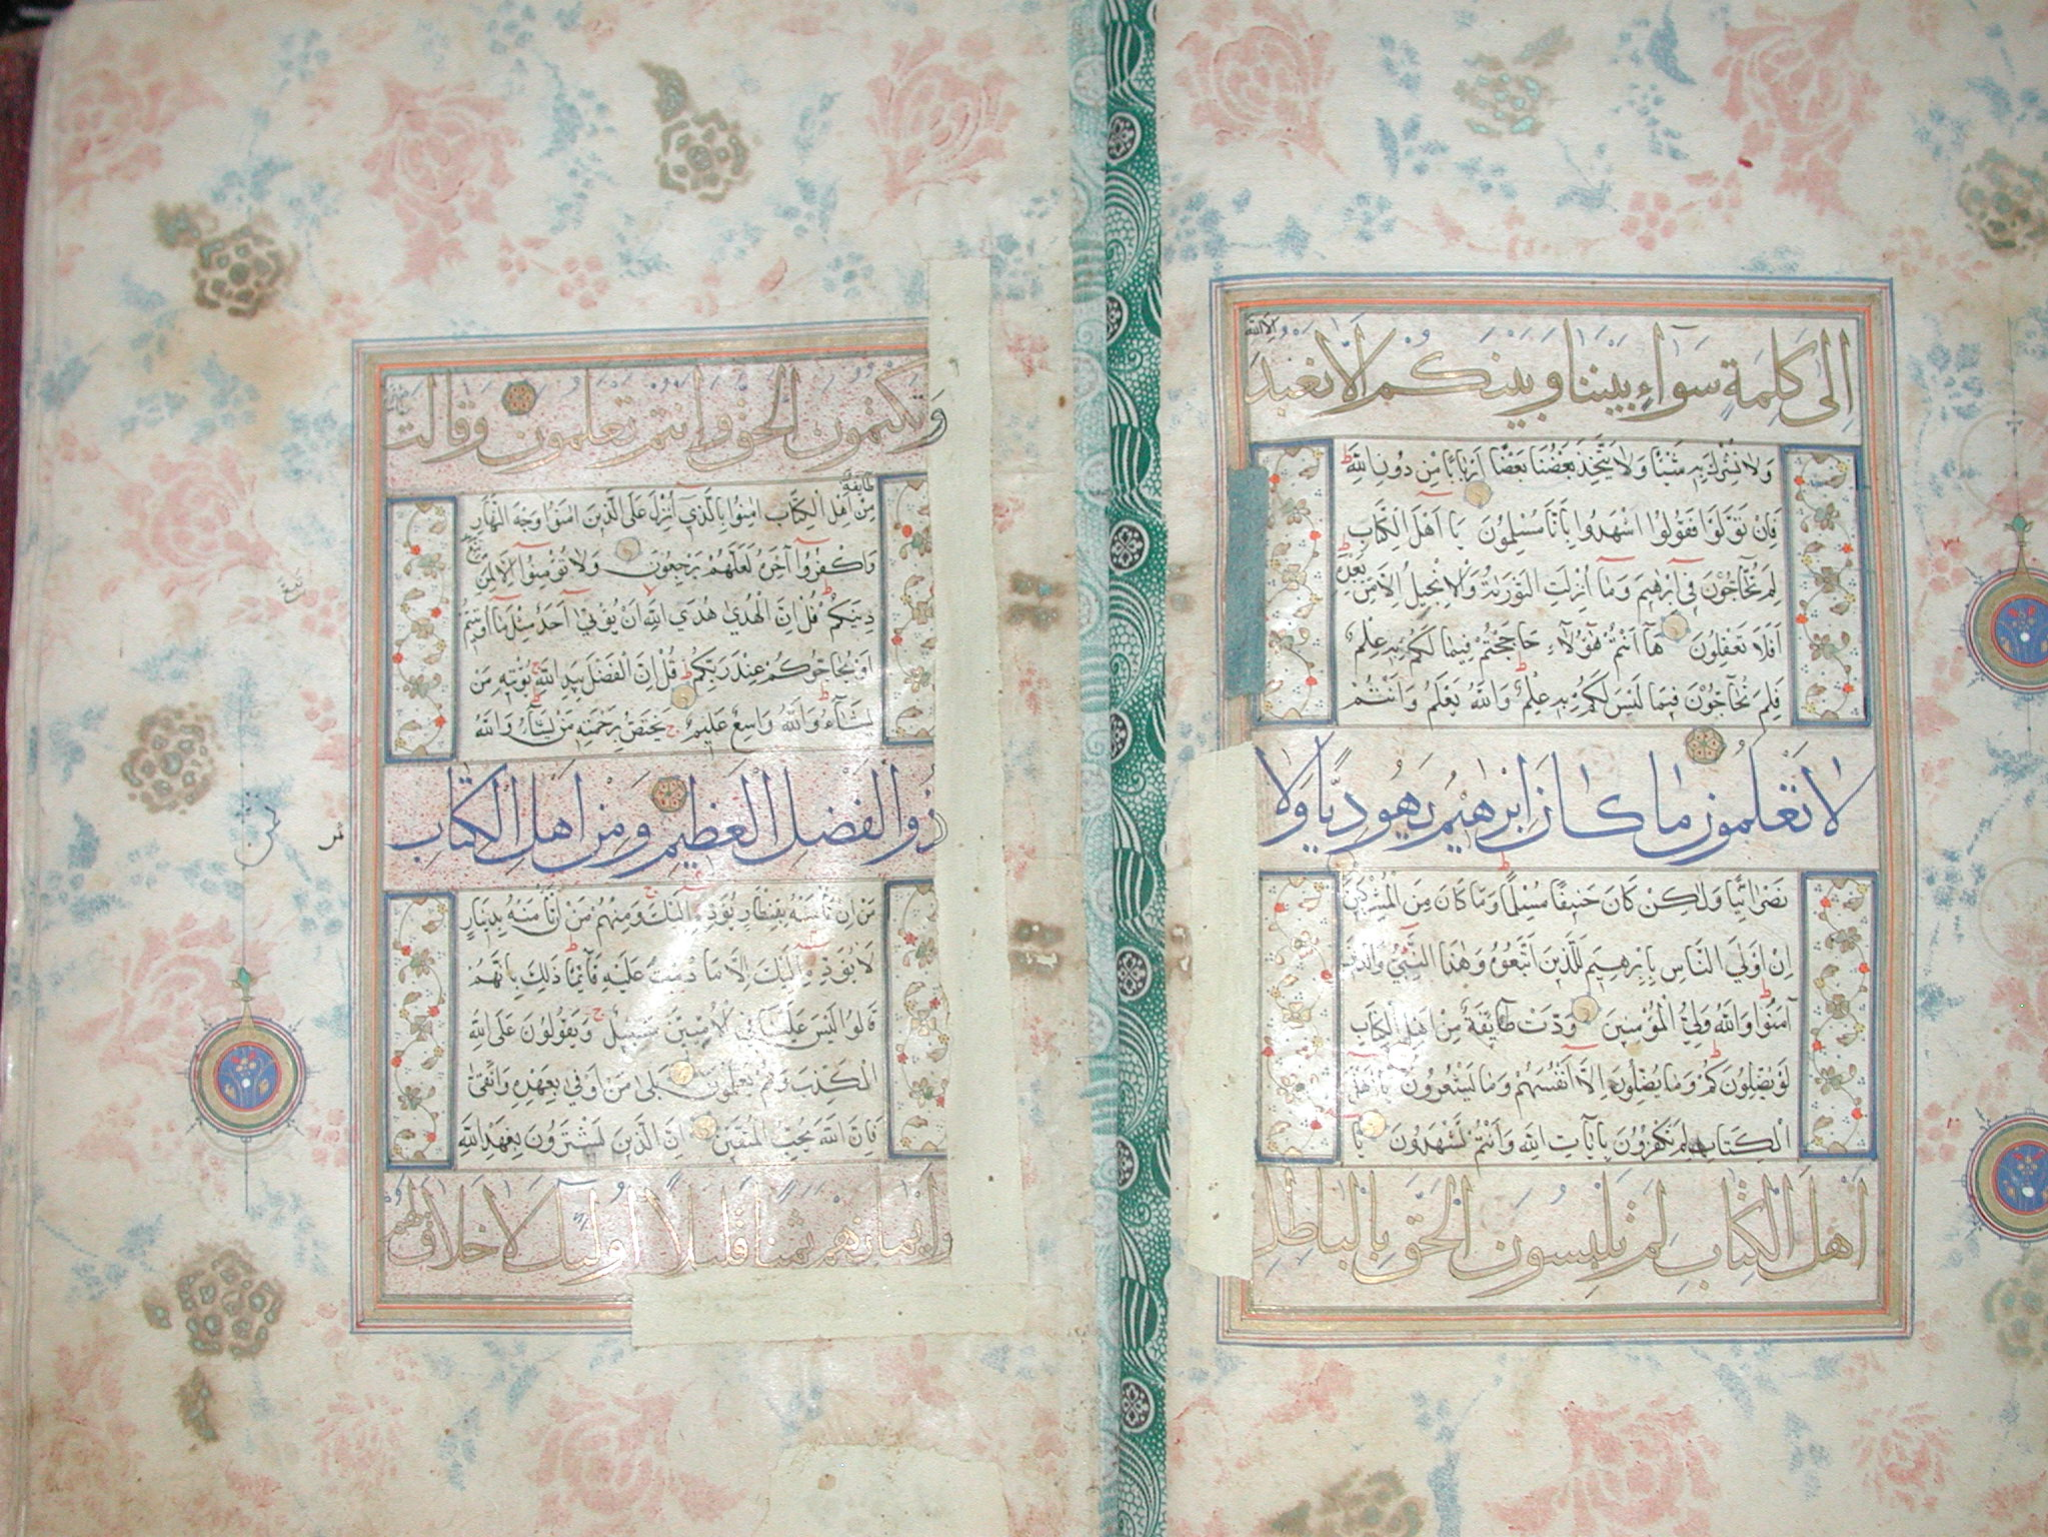 إلى كلمة سواء بيننا وبينكم ألا نعبد
إلا الله
ولا نشرك به شيئا ولا يتخذ بعضنا بعضا أربابا من دون الله
فإن تولوا فقولوا اشهدوا بأنا مسلمون يا أهل الكتاب
لم تحاجون في إبرهيم وما أنزلت التورية والإنجيل إلا من
بعده
أفلا تعقلون ها أنتم هؤلاء حاججتم فيما لكم به علم
فلم تحاجون فيما ليس لكم به علم والله يعلم وأنتم
لا تعلمون ما كان إبرهيم يهوديا ولا
نصرانيا ولكن كان حنيفا مسلما وما كان من المشركين
إن أولي الناس بإبرهيم للذين اتبعوه وهذا النبي والذين
آمنوا والله ولي المؤمنين ودت طائفة من أهل الكتاب
لو يضلونكم وما يضلون إلا أنفسهم وما يشعرون يا أهل
الكتاب لم تكفرون بآيات الله وأنتم تشهدون يا
أهل الكتاب لم تلبسون الحق بالباطل
وتكتمون الحق وأنتم تعلمون وقالت
طايفة
من أهل الكتاب امنوا بالذي أنزل على الذين امنوا وجه النهار
واكفروا آخره لعلهم يرجعون ولا تؤمنوا إلا لمن
تبع
دينكم قل إن الهدى هدى الله أن يؤتى أحد مثل ما أوتيتم
أو يحاجوكم عند ربكم قل إن الفضل بيد الله يؤتيه من
يشاء والله واسع عليم يختص برحمته من يشاء والله
ذوا الفضل العظيم ومن أهل الكتاب
من إن تأمنه بقنطار يؤده إليك ومنهم من إن تأمنه بدينار
لا يؤده إليك إلا ما دمت عليه قائما ذلك بأنهم
قالوا ليس علينا في الأميين سبيل ويقولون على الله
الكذب وهم يعلمون بلى من أوفى بعهده واتقى
فإن الله يحب المتقين إن الذين يشترون بعهد الله
وأيمانهم ثمنا قليلا أولئك لا خلاق لهم